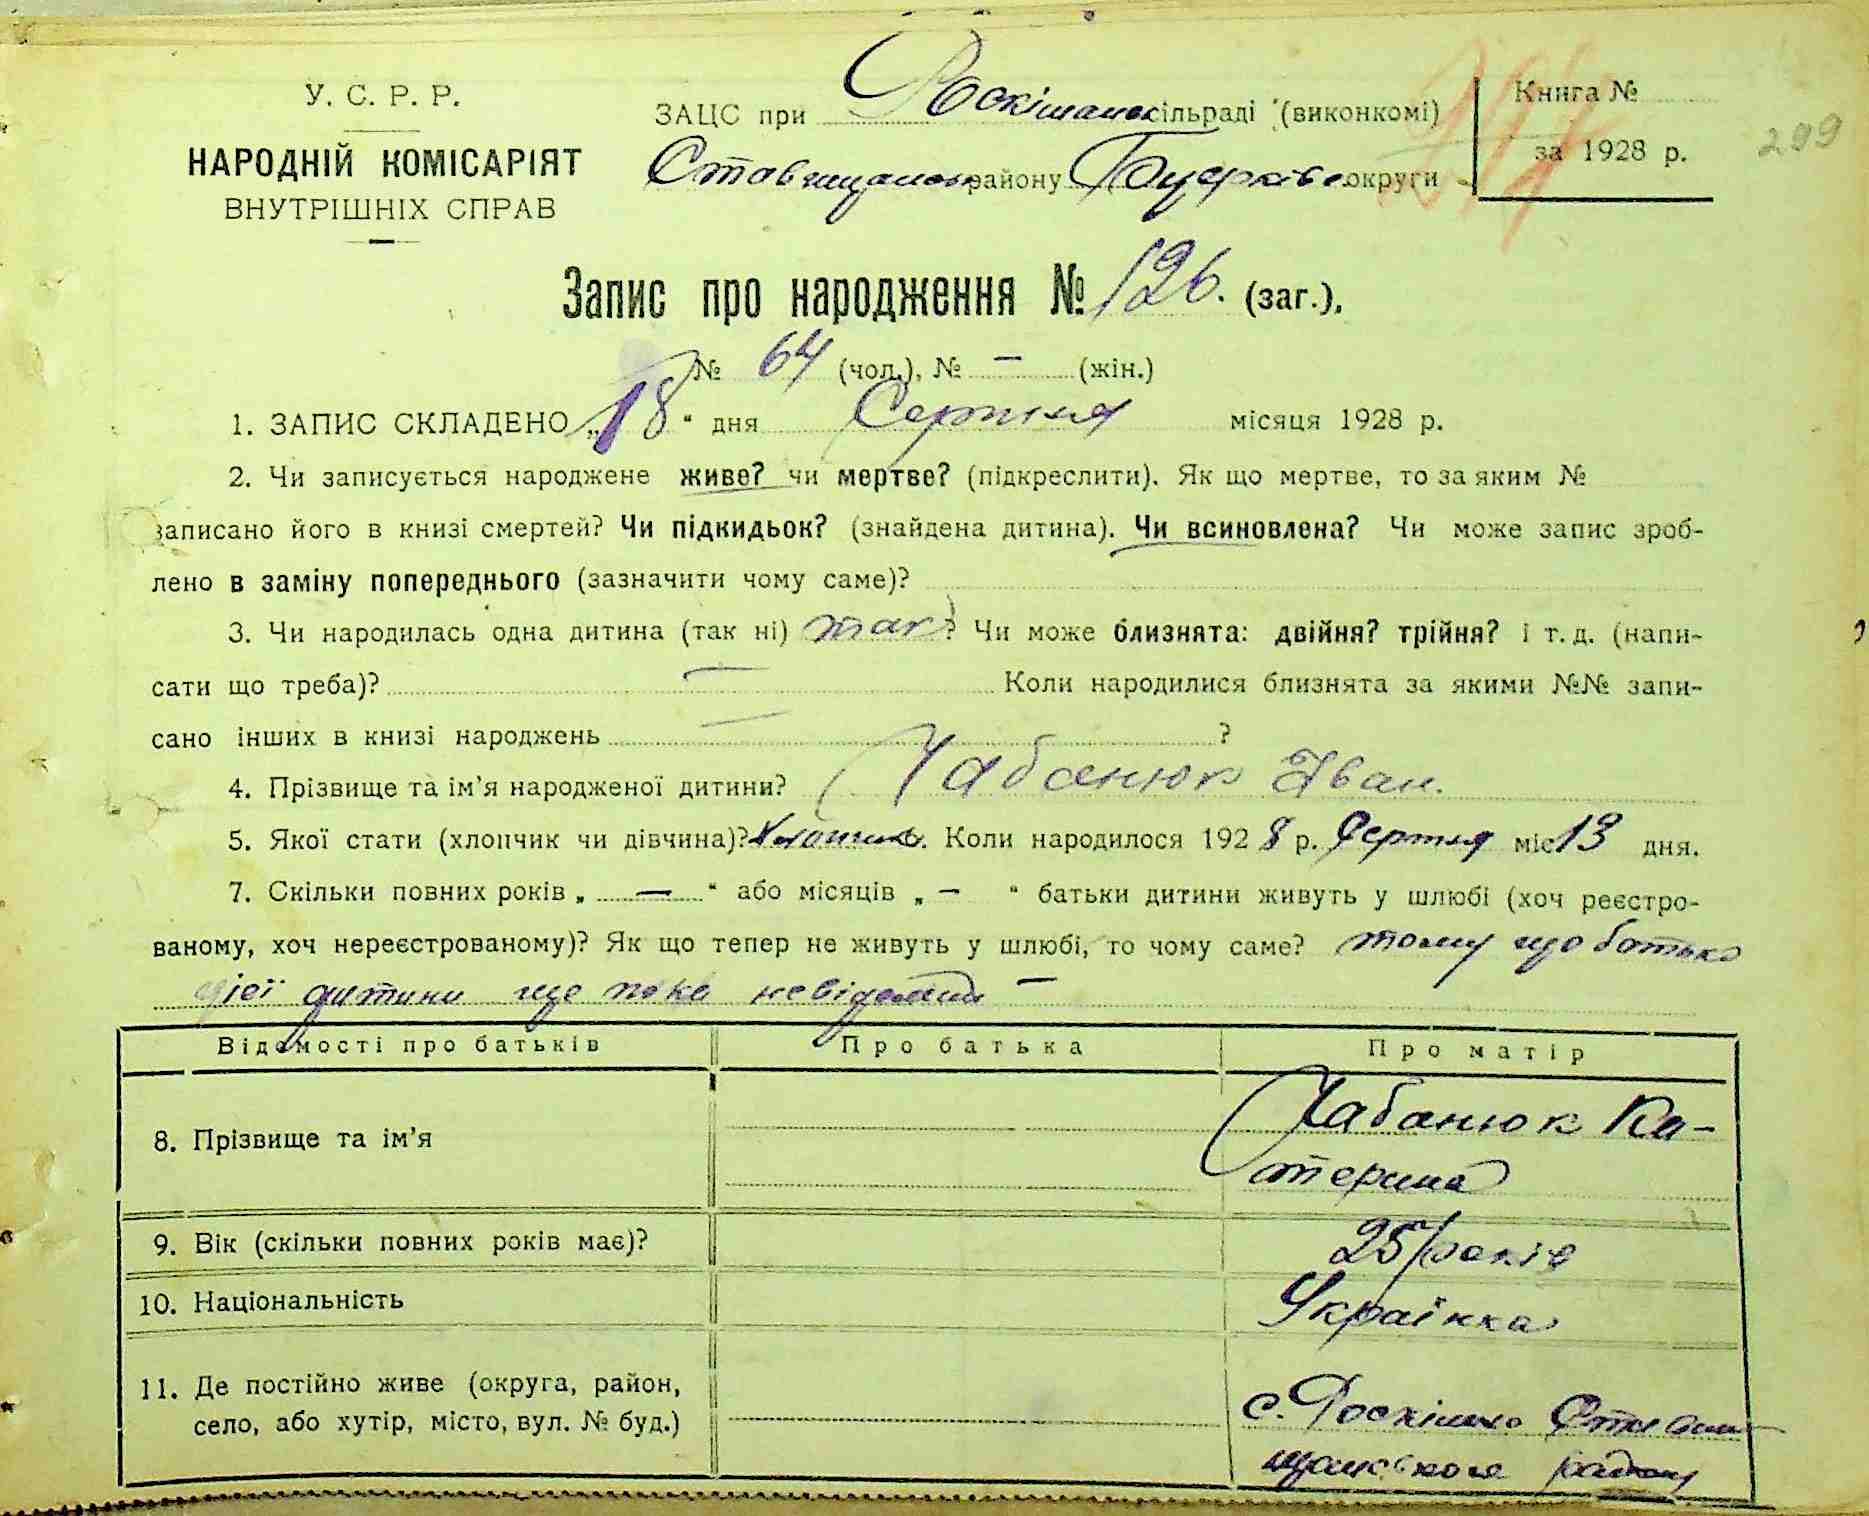 У. С. Р. Р.
НАРОДНІЙ КОМІСАРІЯТ
ВНУТРІШНІХ СПРАВ
ЗАЦС при Роскішанск сільраді (виконкомі)
Ставищанськ району Бцерківс. округи
Книга №
за 1928 р.
299
Запис про народження № 126. (заг.),
№ 64 (чол.), № — (жін.)
1. ЗАПИС СКЛАДЕНО „18“ дня Серпня місяця 1928 р.
2. Чи записується народжене живе? чи мертве? (підкреслити). Як що мертве, то за яким №
записано його в книзі смертей? Чи підкидьок? (знайдена дитина). Чи всиновлена? Чи може запис зроб-
лено в заміну попереднього (зазначити чому саме)?
3. Чи народилась одна дитина (так ні) так? Чи може близнята: двійня? трійня? і т. д. (напи-
сати що треба)? — Коли народилися близнята за якими №№ запи-
сано інших в книзі народжень — ?
4. Прізвище та ім’я народженої дитини? Чабанюк Іван.
5. Якої стати (хлопчик чи дівчина)? Хлопчик. Коли народилося 1928 р. Серпня міс 13 дня.
7. Скільки повних років „ — “ або місяців „ — “ батьки дитини живуть у шлюбі (хоч реєстро-
ваному, хоч нереєстрованому)? Як що тепер не живуть у шлюбі, то чому саме? тому що батько
цієї дитини ще поки невідомий —
Відомості про батьків Про батька Про матір
8. Прізвище та ім’я Чабанюк Ка-
терина
9. Вік (скільки повних років має)? 25 років
10. Національність Українка
11. Де постійно живе (округа, район, с. Роскішна Стави
село, або хутір, місто, вул. № буд.) щанського району